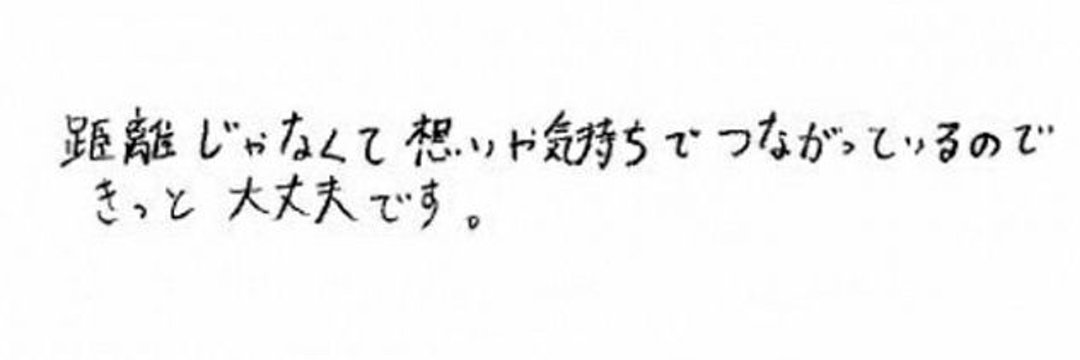 距離じゃなくて想いや気持ちでつながっているので
きっと大丈夫です。